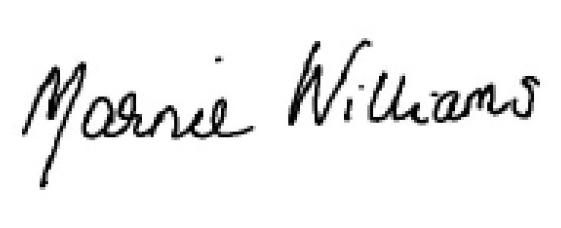 Marnie Williams